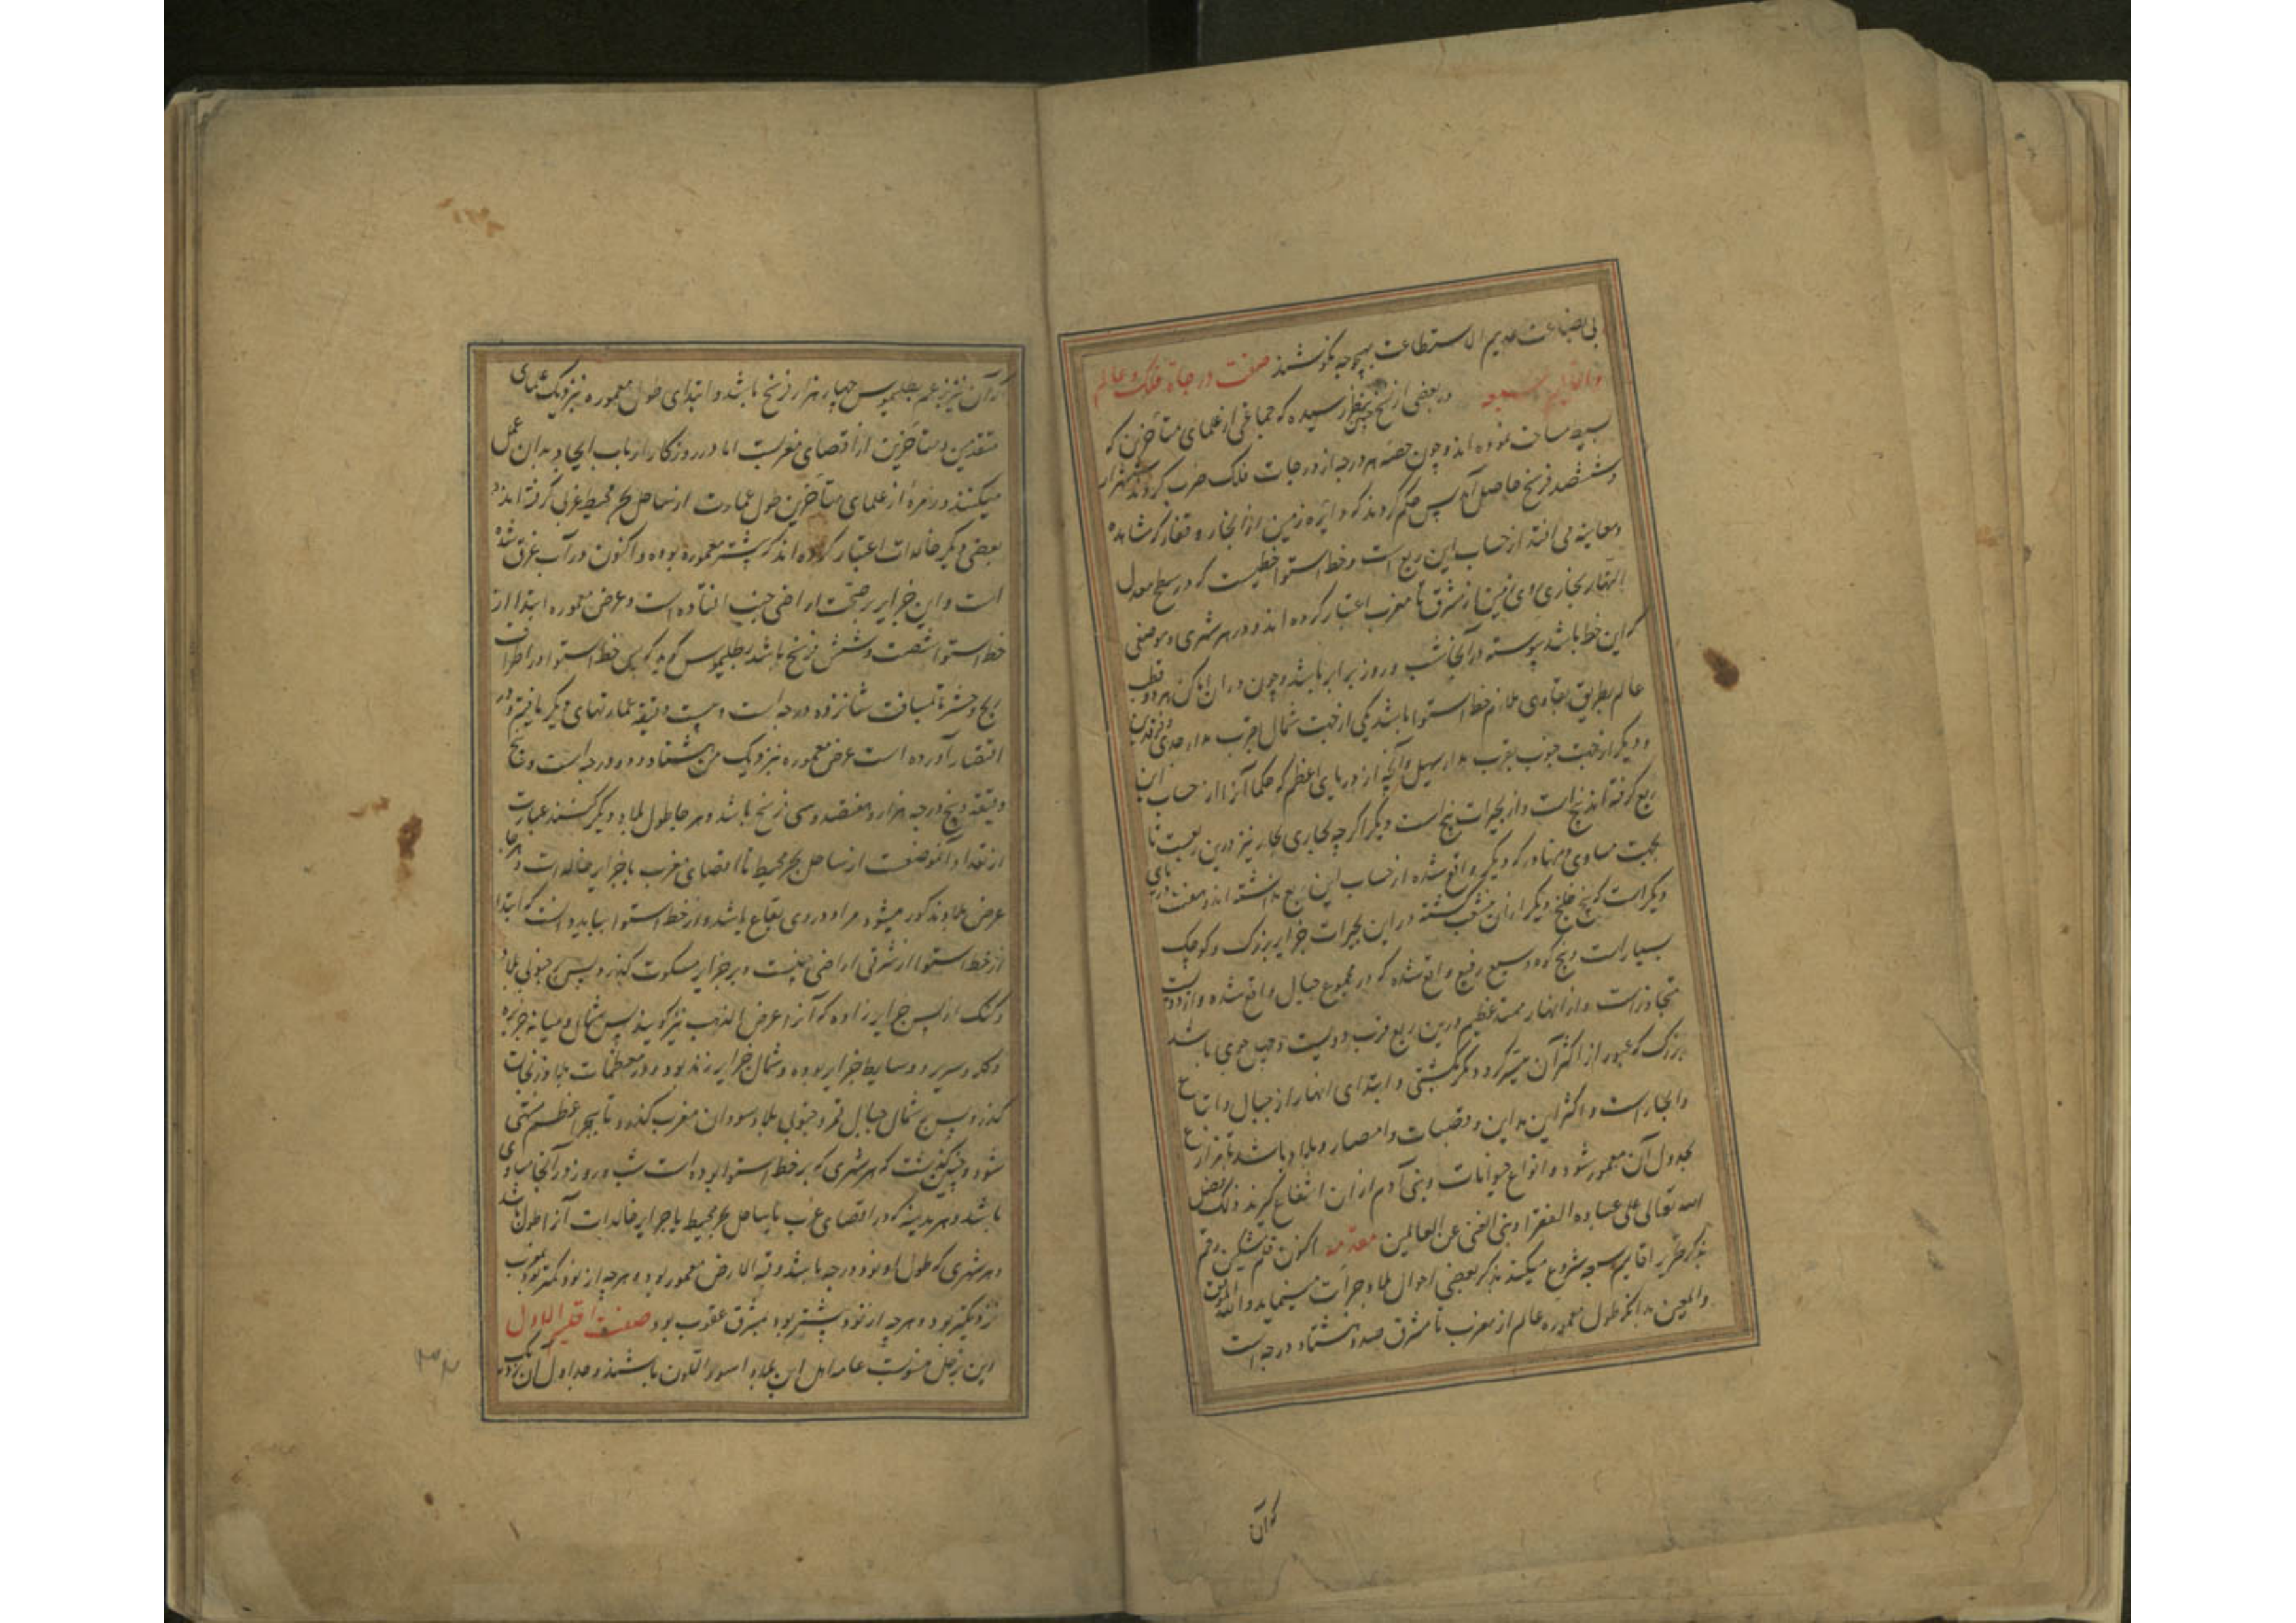 بی بضاعت عدیم الاستطاعت بهیچوجه نکوشند صفت درجات فلک و عالم
و اقالیم سبعه در بعضی از نسخ بنظر رسیده که جماعتی از علمای متأخرین که
بسیط مساحت نموده اند و چون حصه هر درجه از درجات فلک ضرب کردند
و ششصد فرسخ حاصل آمد پس حکم کردند که دایره زمین از انجار و قفار که مشاهده
و معاینه می افتد از حساب این ربع است و خط استوا خطیست که در سطح معدل
النهار بمحاذی روی زمین از مشرق تا مغرب اعتبار کرده اند و در هر شهری و موضعی
که این خط باشد پیوسته در آنجا شب و روز برابر باشد و چون در ان اماکن هر دو قطب
عالم بطریق تساوی ملازم خط استوا باشد یکی از جهت شمال بقرب مدار جدی و فرقدین
و دیگر از جهت جنوب بقرب مدار سهیل و آنچه از دریای اعظم که حکما آنرا از حساب این
ربع گرفته اند پنج است و از بحیرات پنج است دیگر اگر چه مجاری بحار نیز درین ربعست تا
بجهت مساوی دیگر واقع شده از حساب این ربع نداشته اند و هفت دریای
دیگر است که پنج خلیج دیگر از ان منشعب گشته در این بحیرات جزایر بزرگ و کوچک
بسیار است و پنج کوه وسیع رفیع واقع شده که در مجموع جبال واقع شده و از دویست
متجاوز است و از انهار ممتد عظیم درین ربع قرب دویست و چهل جوی باشد
بزرگ که عبور از اکثر آن میسر نگردد مگر بکشتی و ابتدای انهار از جبال و
و انجار است و اکثر این مداین و قصبات و امصار و بلاد باشد تا مزارع
بجدول آن معمور شود و انواع حیوانات و بنی آدم از ان انتفاع گیرند ذلک فضل
الله تعالی علی عباده الفقرا و بنی الغنی عن العالمین مقدمه اکنون قلم مشکین رقم
بذکر تحریر اقالیم سبعه شروع میکند بذکر بعضی احوال بلاد و جزایر مینماید والله الموفق
والمعین بدانکه طول معموره عالم از مغرب تا مشرق صد و هشتاد درجه است
که آن
که آن نیز بزعم بطلمیوس چهار هزار فرسخ باشد و ابتدای طول معموره نزدیک علمای
متقدمین و متأخرین از اقصای مغربست اما در روزگار ارباب ایجاد بدان عمل
میکنند و زمره از علمای متأخرین طول عمارت از ساحل بحر محیط غربی گرفته اند و
بعضی دیگر خالدات اعتبار کرده اند که پیشتر معموره بوده و اکنون در آب غرق شده
است و این جزایر بر تحت اراضی افتاده است و عرض معموره ابتدا از
خط استوا شصت و شش فرسخ باشد بطلیموس گوید که پس خط استوا در اطراف
زنج و حبشه تا مسافت شانزده درجه است و بیست دقیقه عمارتهای دیگر یافتم و در
اقتصار آورده است عرض معموره نزدیک من هشتاد و دو درجه است و پنج
دقیقه و پنج درجه هزار و هفتصد و سی فرسخ باشد و هر جا طول بلاد دیگر کنند عبارت
از بعد آن موضعست از ساحل بحر محیط تا اقصای مغرب یا جزایر خالدات و هر جا
عرض بلاد مذکور میشود مراد دوری بقاع باشد از خط استوا بباید دانست که ابتدا
از خط استوا از شرقی اراضی چینست و بر جزایر مسکوت گذرد پس بر جنوبی بلاد
و کنک از پس جزایر زاوه که آنرا عرض الذهب نیز گویند پس بر شمال و میانه جزیره
و سریر و وسایط جزایر بوده و شمال جزایر زند بود و در معظمات بلاد زنجبات
گذرد پس بر شمال جبال قمر و جنوبی بلاد سودان مغرب گذرد تا ببحر اعظم منتهی
شود و چنین گذشت که هر شهری که بر خط استوا بوده است شب و روز در آنجا مساوی
باشد و هر مدینه که در اقصای غرب یا ساحل بحر محیط یا جزایر خالدات آنرا طول نباشد
و هر شهری که طول او نود درجه باشد و قبة الارض معمور بود و هر چه از نود کمتر بود بمغرب
نزدیکتر بود و هر چه از نود بیشتر بود بمشرق عقوب بود صفت اقلیم الاول
این بزحل منسوبست عامه اهل این بلاد اسود اللون باشند و جداول آن نزدیک